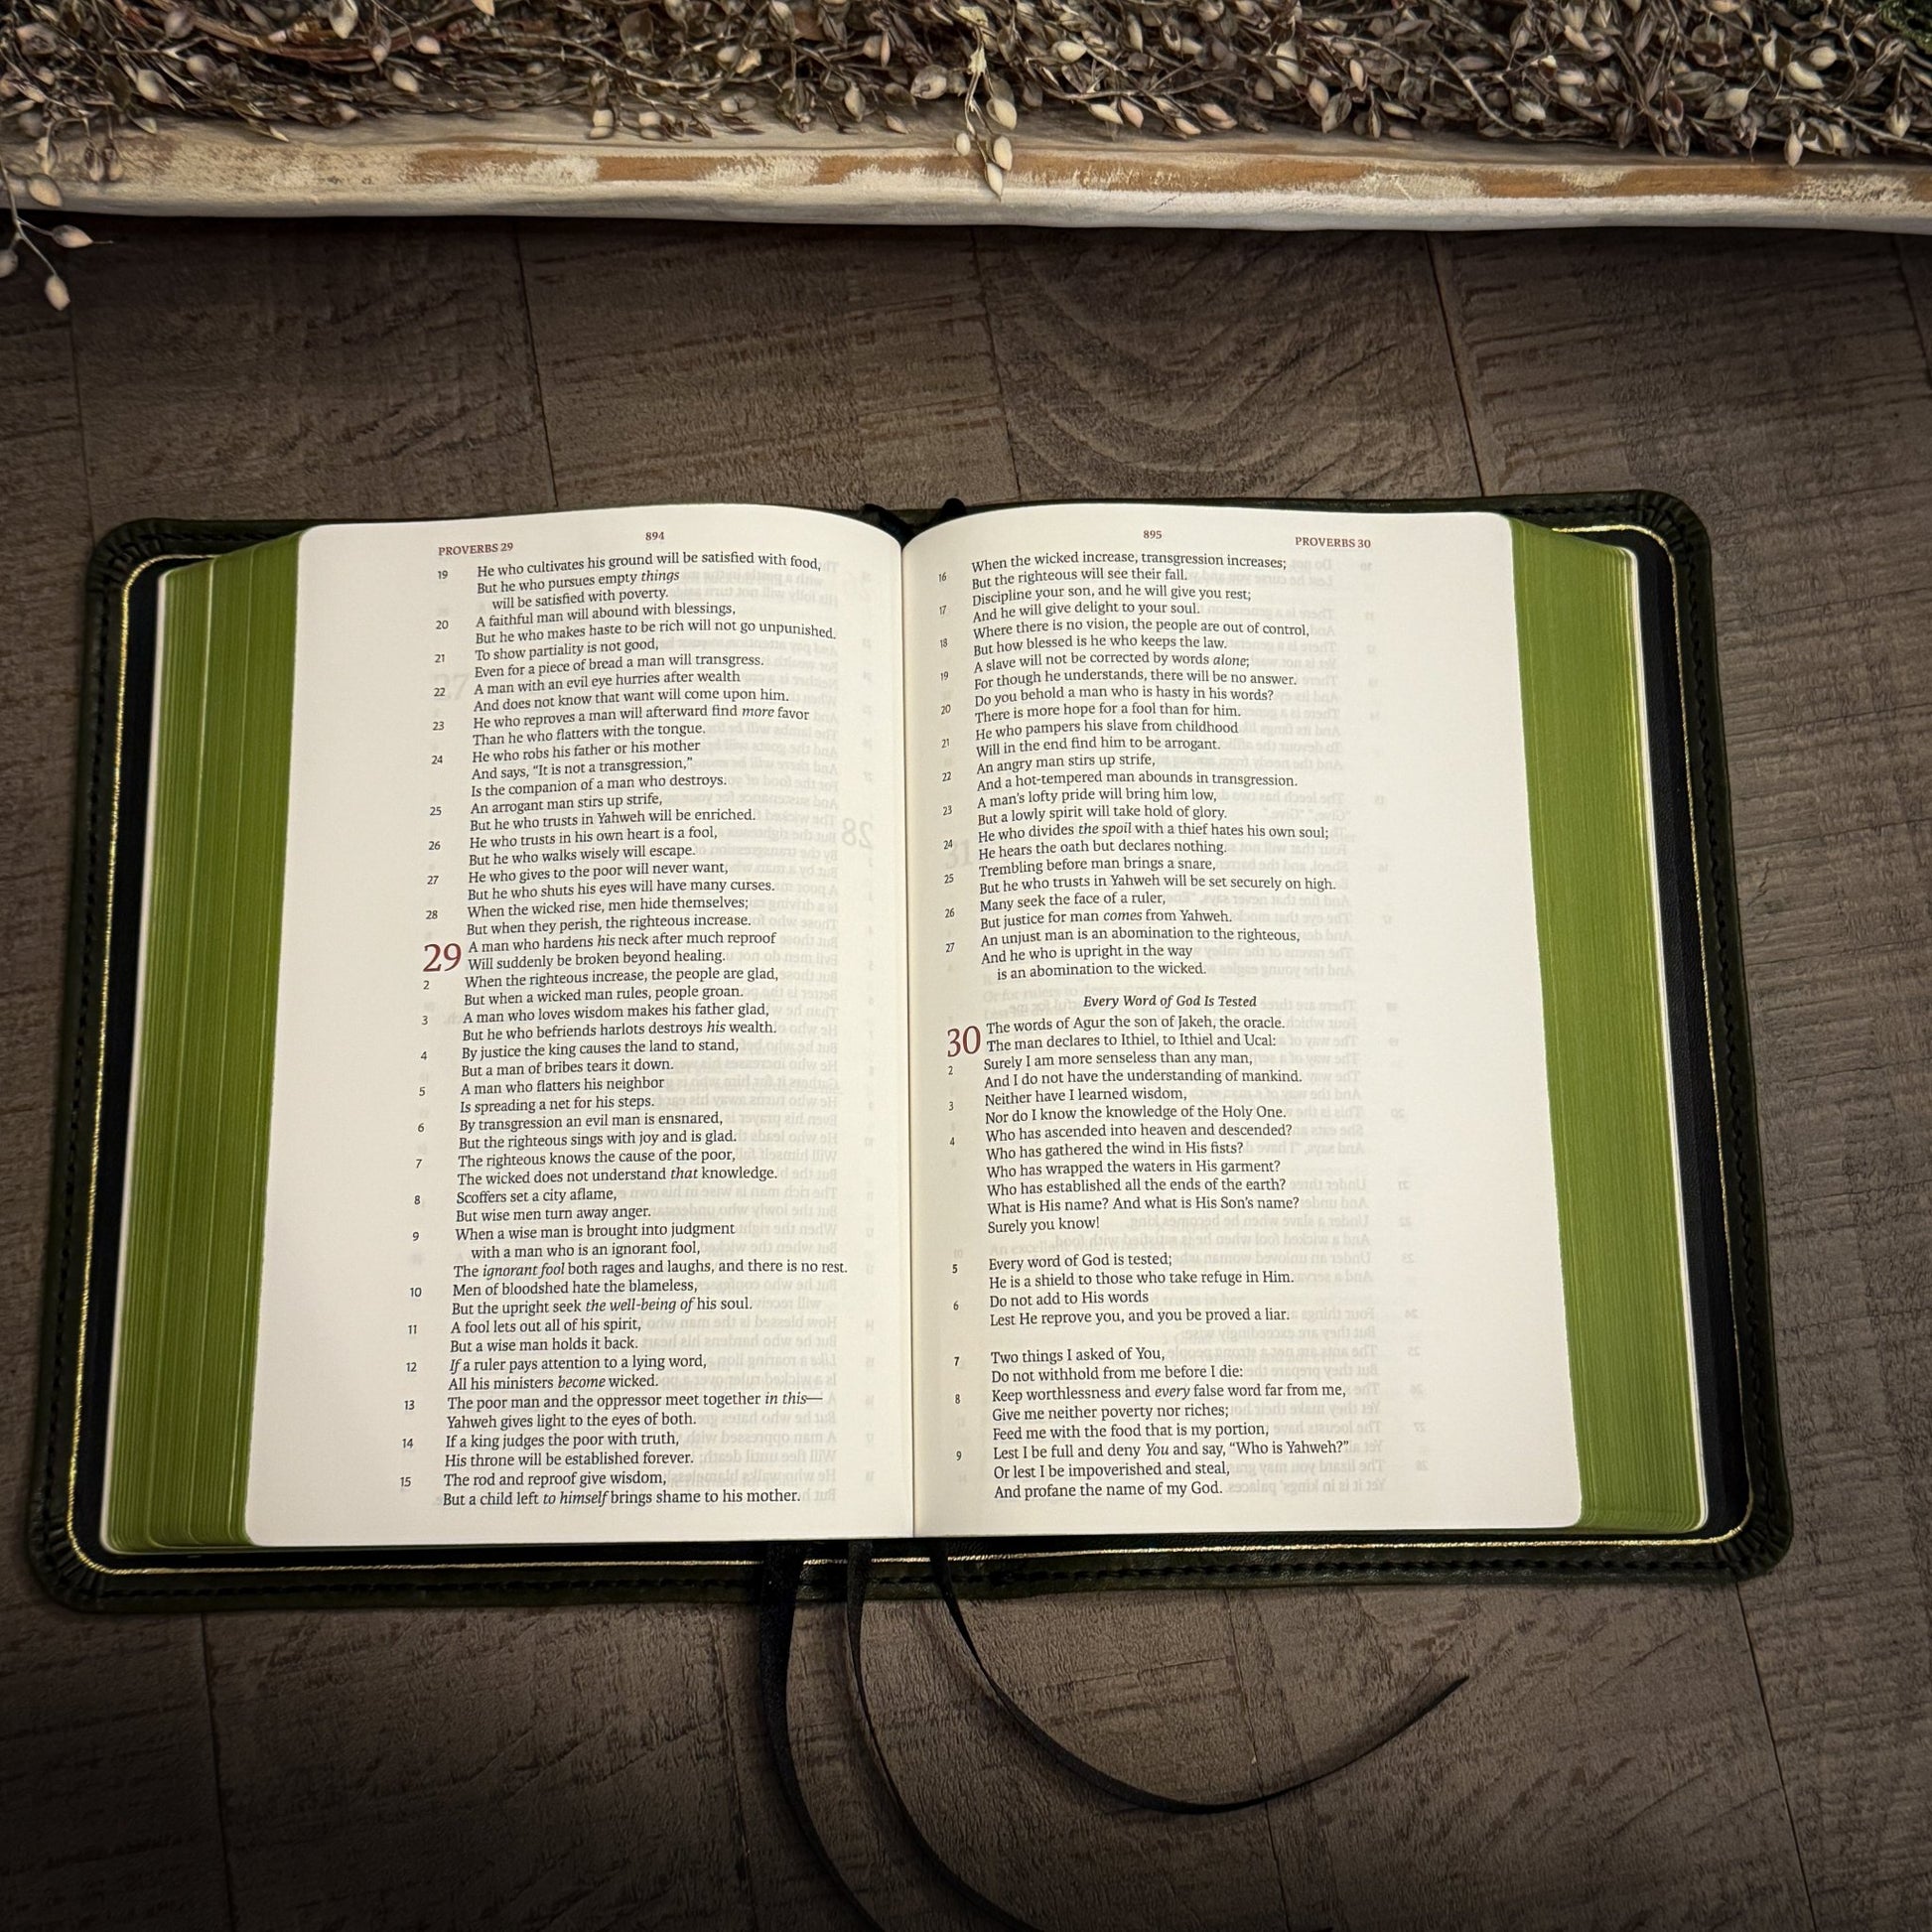 PROVERBS 29
894
19 He who cultivates his ground will be satisfied with food,
But he who pursues empty things
will be satisfied with poverty.
20 A faithful man will abound with blessings,
But he who makes haste to be rich will not go unpunished.
21 To show partiality is not good,
Even for a piece of bread a man will transgress.
22 A man with an evil eye hurries after wealth
And does not know that want will come upon him.
23 He who reproves a man will afterward find more favor
Than he who flatters with the tongue.
24 He who robs his father or his mother
And says, “It is not a transgression,”
Is the companion of a man who destroys.
25 An arrogant man stirs up strife,
But he who trusts in Yahweh will be enriched.
26 He who trusts in his own heart is a fool,
But he who walks wisely will escape.
27 He who gives to the poor will never want,
But he who shuts his eyes will have many curses.
28 When the wicked rise, men hide themselves;
But when they perish, the righteous increase.
29 A man who hardens his neck after much reproof
Will suddenly be broken beyond healing.
2 When the righteous increase, the people are glad,
But when a wicked man rules, people groan.
3 A man who loves wisdom makes his father glad,
But he who befriends harlots destroys his wealth.
4 By justice the king causes the land to stand,
But a man of bribes tears it down.
5 A man who flatters his neighbor
Is spreading a net for his steps.
6 By transgression an evil man is ensnared,
But the righteous sings with joy and is glad.
7 The righteous knows the cause of the poor,
The wicked does not understand that knowledge.
8 Scoffers set a city aflame,
But wise men turn away anger.
9 When a wise man is brought into judgment
with a man who is an ignorant fool,
The ignorant fool both rages and laughs, and there is no rest.
10 Men of bloodshed hate the blameless,
But the upright seek the well-being of his soul.
11 A fool lets out all of his spirit,
But a wise man holds it back.
12 If a ruler pays attention to a lying word,
All his ministers become wicked.
13 The poor man and the oppressor meet together in this—
Yahweh gives light to the eyes of both.
14 If a king judges the poor with truth,
His throne will be established forever.
15 The rod and reproof give wisdom,
But a child left to himself brings shame to his mother.
895
PROVERBS 30
16 When the wicked increase, transgression increases;
But the righteous will see their fall.
17 Discipline your son, and he will give you rest;
And he will give delight to your soul.
18 Where there is no vision, the people are out of control,
But how blessed is he who keeps the law.
19 A slave will not be corrected by words alone;
For though he understands, there will be no answer.
20 Do you behold a man who is hasty in his words?
There is more hope for a fool than for him.
21 He who pampers his slave from childhood
Will in the end find him to be arrogant.
22 An angry man stirs up strife,
And a hot-tempered man abounds in transgression.
23 A man’s lofty pride will bring him low,
But a lowly spirit will take hold of glory.
24 He who divides the spoil with a thief hates his own soul;
He hears the oath but declares nothing.
25 Trembling before man brings a snare,
But he who trusts in Yahweh will be set securely on high.
26 Many seek the face of a ruler,
But justice for man comes from Yahweh.
27 An unjust man is an abomination to the righteous,
And he who is upright in the way
is an abomination to the wicked.
Every Word of God Is Tested
30 The words of Agur the son of Jakeh, the oracle.
The man declares to Ithiel, to Ithiel and Ucal:
2 Surely I am more senseless than any man,
And I do not have the understanding of mankind.
3 Neither have I learned wisdom,
Nor do I know the knowledge of the Holy One.
4 Who has ascended into heaven and descended?
Who has gathered the wind in His fists?
Who has wrapped the waters in His garment?
Who has established all the ends of the earth?
What is His name? And what is His Son’s name?
Surely you know!
5 Every word of God is tested;
He is a shield to those who take refuge in Him.
6 Do not add to His words
Lest He reprove you, and you be proved a liar.
7 Two things I asked of You,
Do not withhold from me before I die:
8 Keep worthlessness and every false word far from me,
Give me neither poverty nor riches;
Feed me with the food that is my portion,
9 Lest I be full and deny You and say, “Who is Yahweh?”
Or lest I be impoverished and steal,
And profane the name of my God.